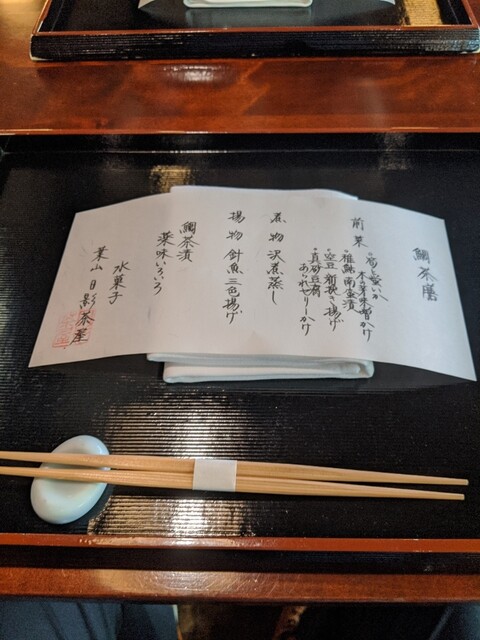 鯛茶膳
前菜
・筍と蛍いか
木の芽味噌かけ
・稚鮎南蛮漬
・空豆新挽き揚げ
・真砂豆腐
あられゼリーかけ
煮物 沢煮蒸し
揚物 針魚三色揚げ
鯛茶漬
薬味いろいろ
水菓子
葉山 日影茶屋